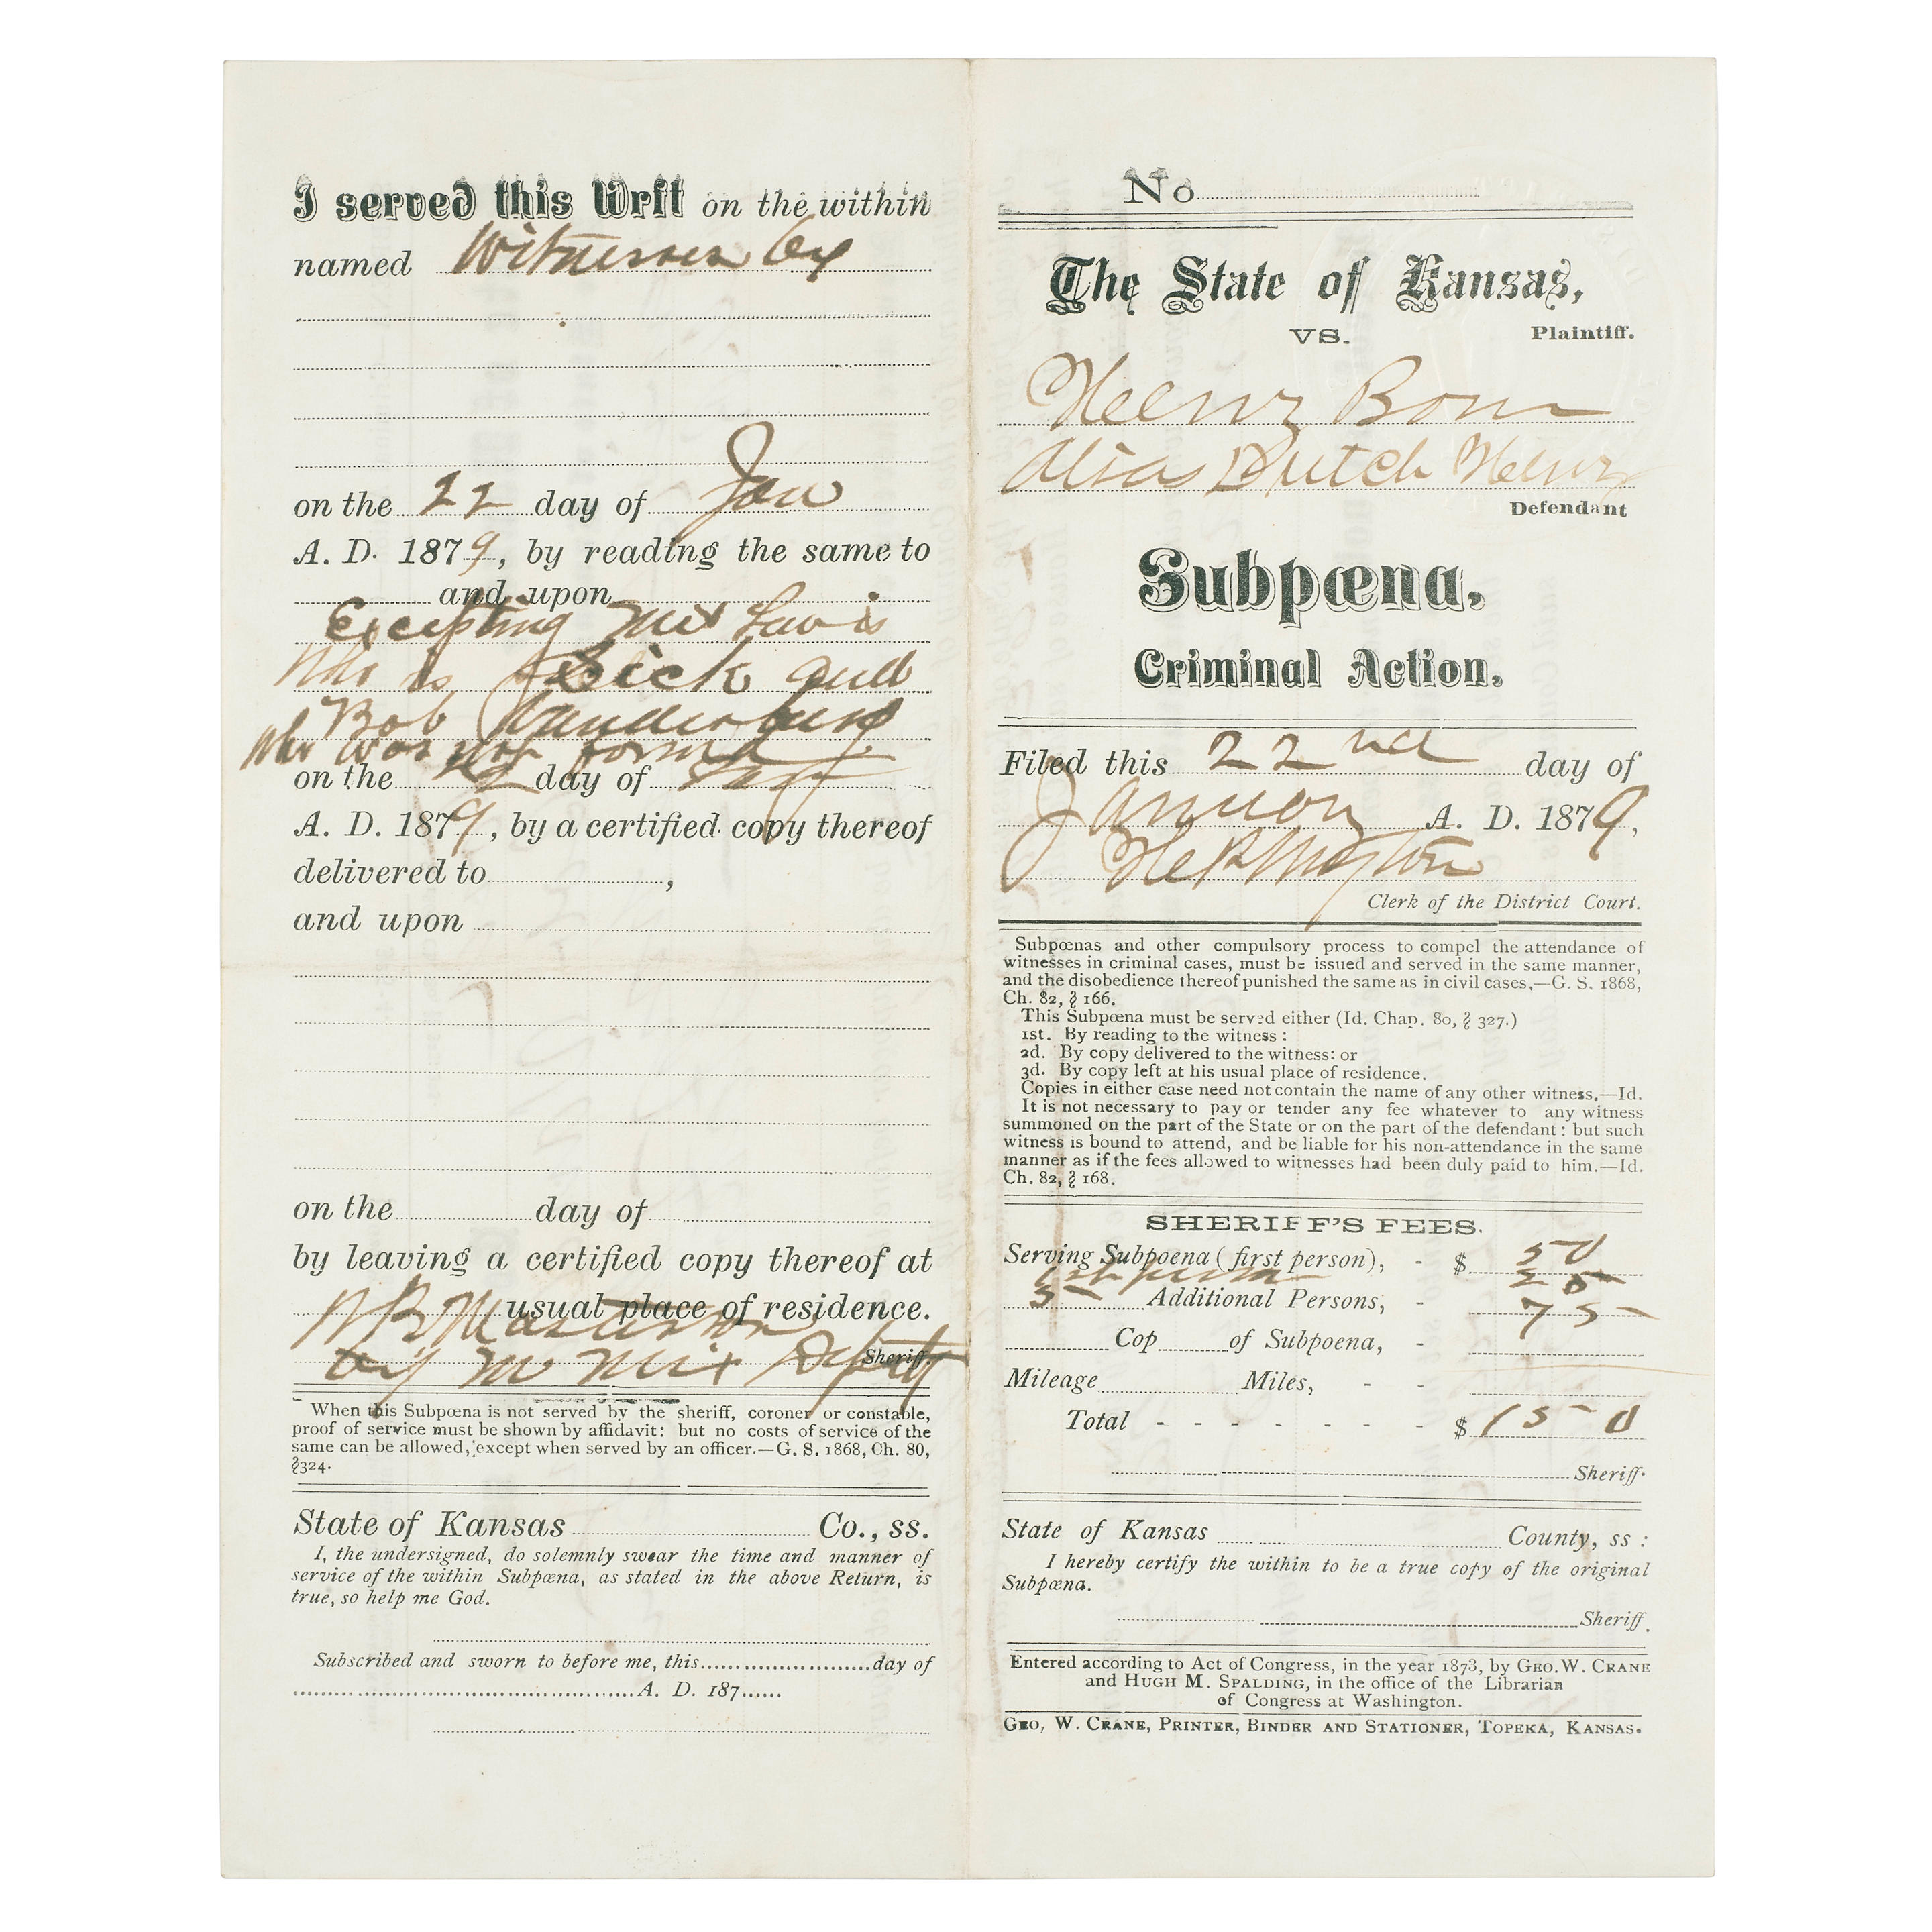 I served this Writ on the within
named Witnesses by
on the 22 day of Jan
A. D. 1879, by reading the same to
and upon
Excepting
who is Sick and
Bob Vanderburg
who was not found
on the 22 day of
A. D. 1879, by a certified copy thereof
delivered to ,
and upon
on the day of
by leaving a certified copy thereof at
usual place of residence.
W B Masterson
by M Mix Deputy Sheriff.
When this Subpœna is not served by the sheriff, coroner or constable,
proof of service must be shown by affidavit: but no costs of service of the
same can be allowed, except when served by an officer.—G. S. 1868, Ch. 80,
§324.
State of Kansas Co., ss.
I, the undersigned, do solemnly swear the time and manner of
service of the within Subpœna, as stated in the above Return, is
true, so help me God.
Subscribed and sworn to before me, this day of
A. D. 187
No
The State of Kansas,
Plaintiff.
VS.
Henry Born
alias Dutch Henry
Defendant
Subpœna,
Criminal Action,
Filed this 22nd day of
January A. D. 1879,
Clerk of the District Court.
Subpœnas and other compulsory process to compel the attendance of
witnesses in criminal cases, must be issued and served in the same manner,
and the disobedience thereof punished the same as in civil cases,—G. S. 1868,
Ch. 82, § 166.
This Subpœna must be served either (Id. Chap. 80, § 327.)
1st. By reading to the witness :
2d. By copy delivered to the witness: or
3d. By copy left at his usual place of residence.
Copies in either case need not contain the name of any other witness.—Id.
It is not necessary to pay or tender any fee whatever to any witness
summoned on the part of the State or on the part of the defendant : but such
witness is bound to attend, and be liable for his non-attendance in the same
manner as if the fees allowed to witnesses had been duly paid to him.—Id.
Ch. 82, § 168.
SHERIFF'S FEES.
Serving Subpoena (first person), - $ 50
1st person
5 Additional Persons, - 75
Cop of Subpoena, -
Mileage Miles, - -
Total - - - - - - - $ 1 50
Sheriff.
State of Kansas County, ss :
I hereby certify the within to be a true copy of the original
Subpœna.
Sheriff.
Entered according to Act of Congress, in the year 1873, by GEO. W. CRANE
and HUGH M. SPALDING, in the office of the Librarian
of Congress at Washington.
GEO, W. CRANE, PRINTER, BINDER AND STATIONER, TOPEKA, KANSAS.